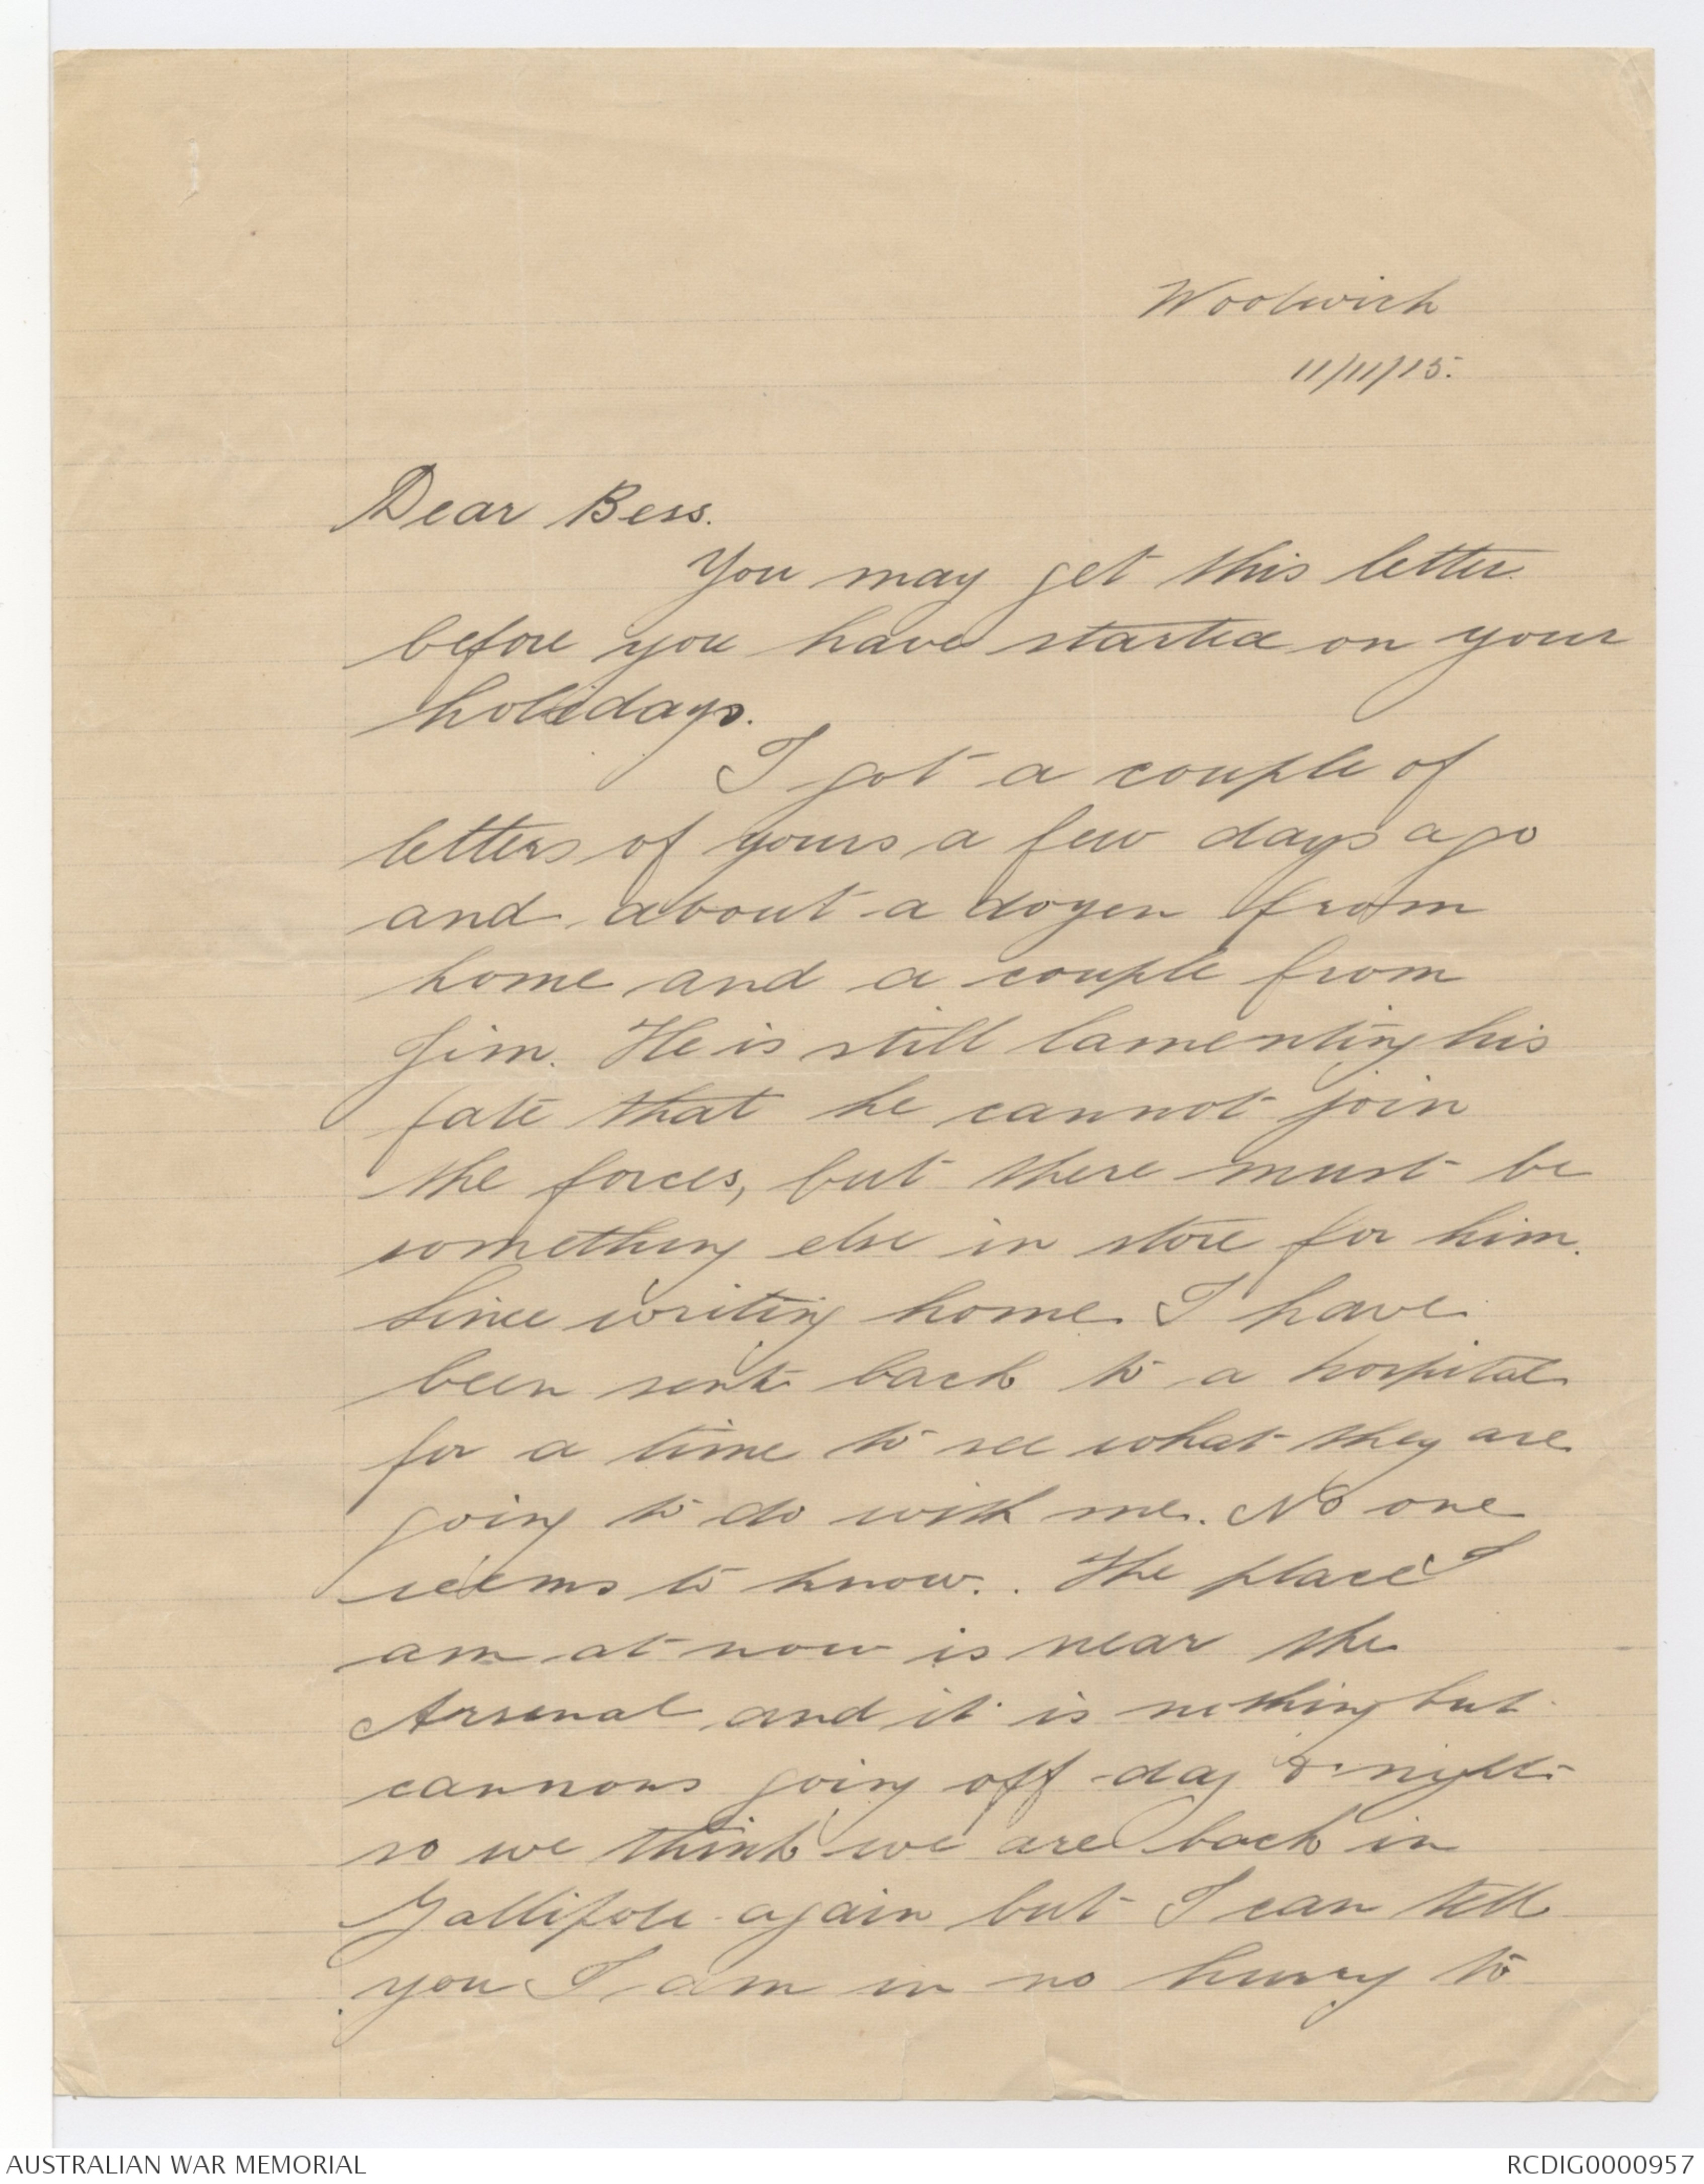 Woolwich
11/11/15.
Dear Bess.
You may get this letter
before you have started on your
holidays.
I got a couple of
letters of yours a few days ago
and about a dozen from
home and a couple from
Jim. He is still lamenting his
fate that he cannot join
the forces, but there must be
something else in store for him.
Since writing home I have
been sent back to a hospital
for a time to see what they are
going to do with me. No one
seems to know. The place I
am at now is near the
Arsenal and it is nothing but
cannons going off day & night
so we think we are back in
Gallipoli again but I can tell
you I am in no hurry to
AUSTRALIAN WAR MEMORIAL
RCDIG0000957